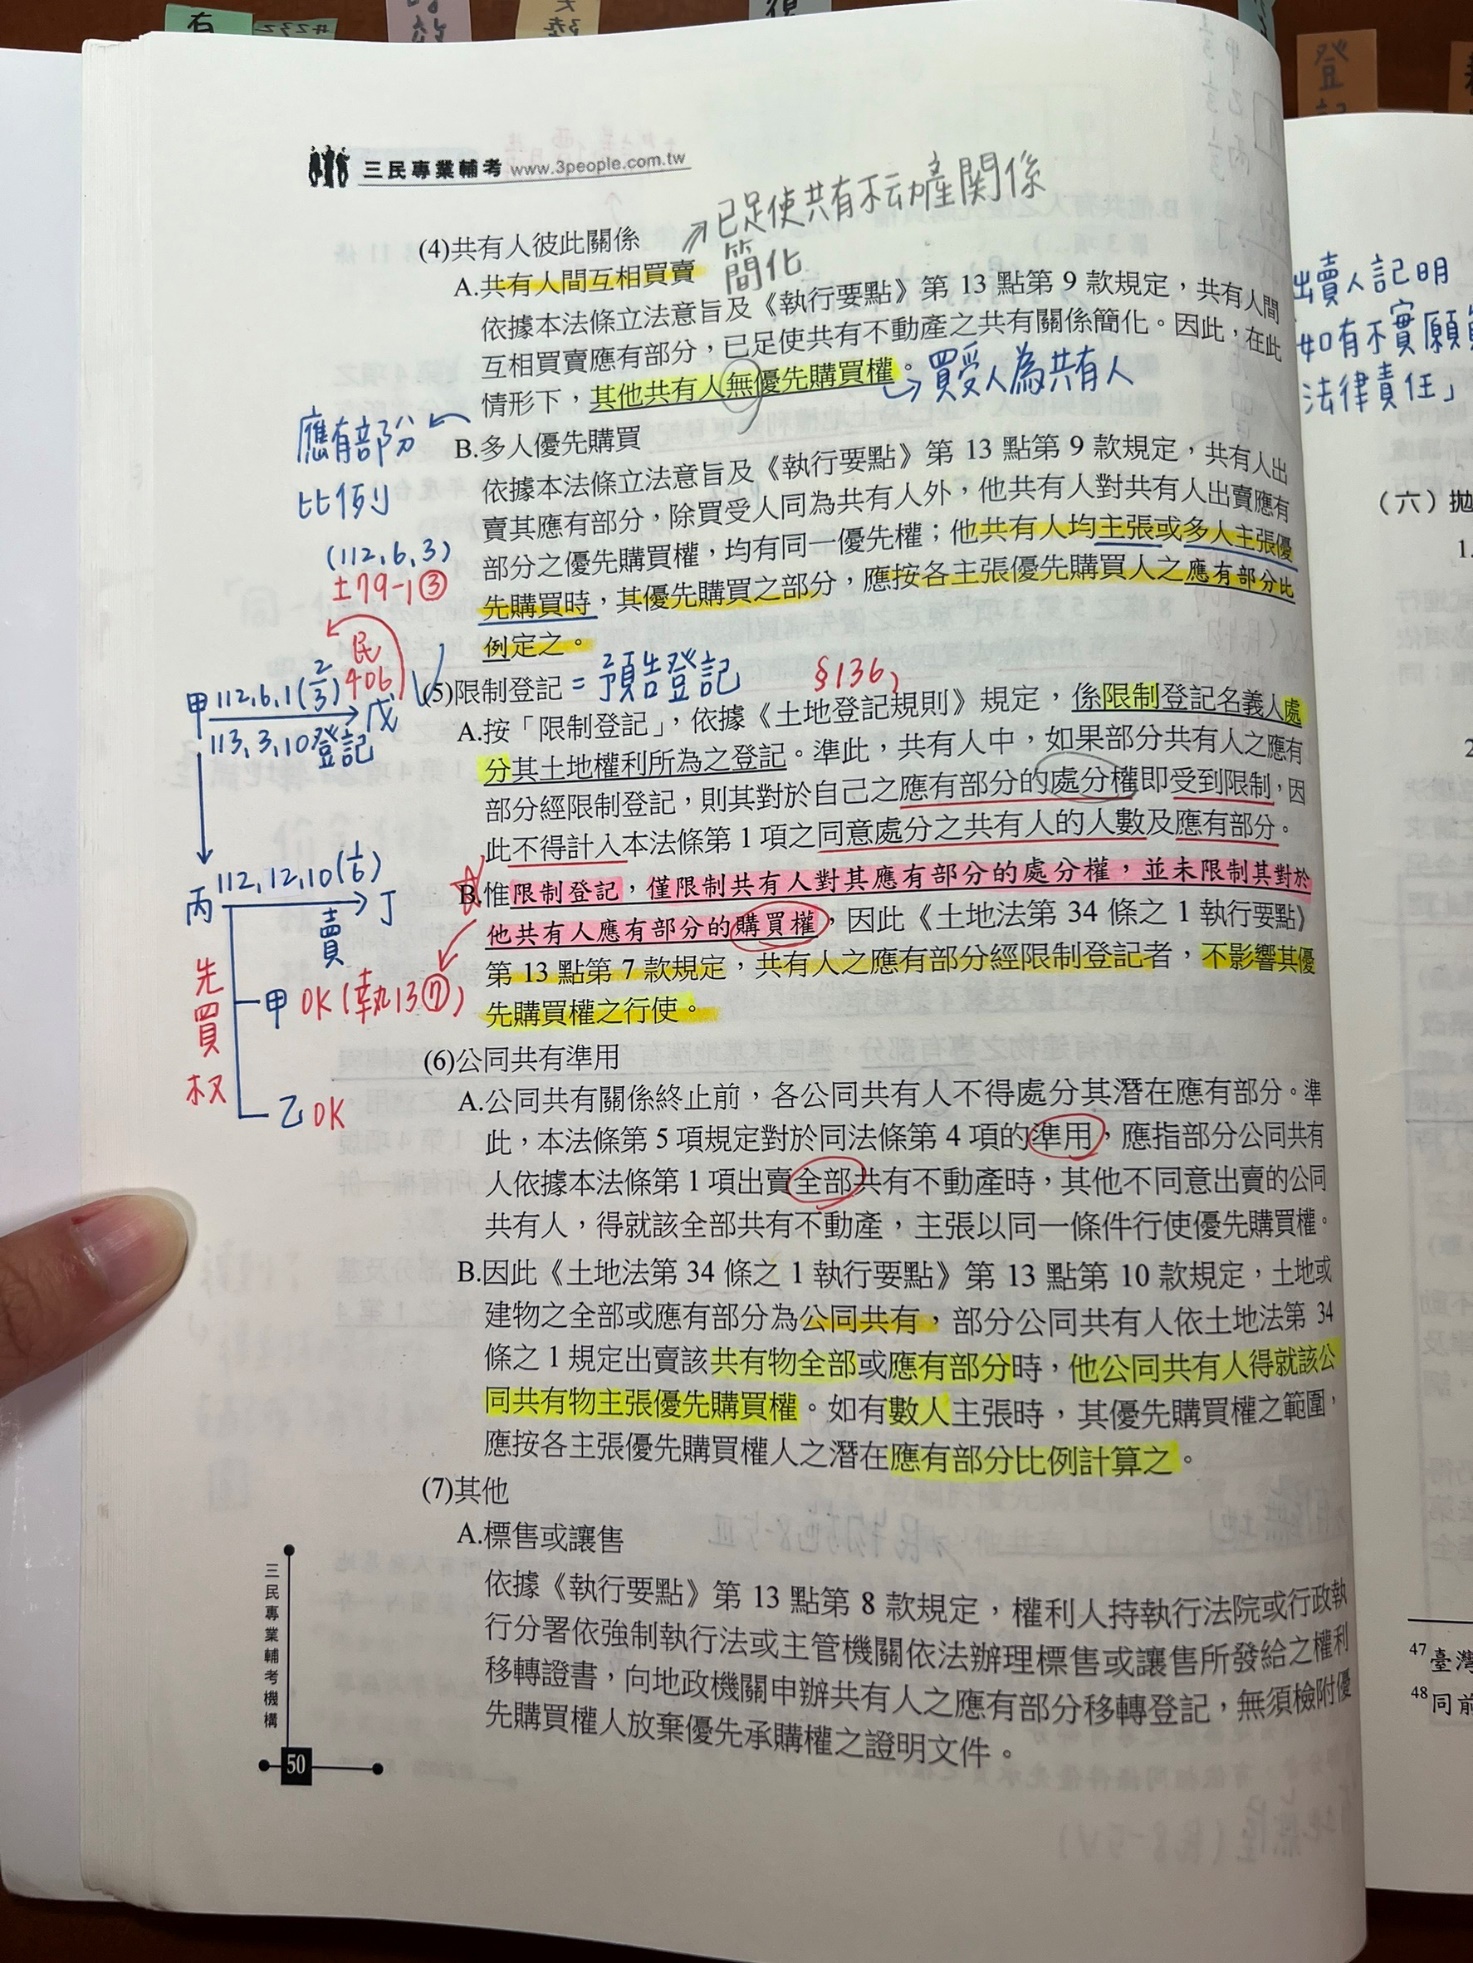 有
登
三民專業輔考 www.3people.com.tw
已足使共有不动產関係
簡化
(4)共有人彼此關係
A.共有人間互相買賣
依據本法條立法意旨及《執行要點》第 13 點第 9 款規定，共有人間
互相買賣應有部分，已足使共有不動產之共有關係簡化。因此，在此
情形下，其他共有人無優先購買權。
買受人為共有人
應有部分
比例
B.多人優先購買
依據本法條立法意旨及《執行要點》第 13 點第 9 款規定，共有人出
賣其應有部分，除買受人同為共有人外，他共有人對共有人出賣應有
部分之優先購買權，均有同一優先權；他共有人均主張或多人主張優
先購買時，其優先購買之部分，應按各主張優先購買人之應有部分比
例定之。
(112,6,3)
土79-1③
民
406
甲 112,6,1(2/3) 戊
113,3,10登記
(5)限制登記 = 預告登記
§136,
A.按「限制登記」，依據《土地登記規則》規定，係限制登記名義人處
分其土地權利所為之登記。準此，共有人中，如果部分共有人之應有
部分經限制登記，則其對於自己之應有部分的處分權即受到限制，因
此不得計入本法條第 1 項之同意處分之共有人的人數及應有部分。
B.惟限制登記，僅限制共有人對其應有部分的處分權，並未限制其對於
他共有人應有部分的購買權，因此《土地法第 34 條之 1 執行要點》
第 13 點第 7 款規定，共有人之應有部分經限制登記者，不影響其優
先購買權之行使。
丙 112,12,10(1/6) 丁
賣
先買权
甲 OK(執13⑦)
乙 OK
(6)公同共有準用
A.公同共有關係終止前，各公同共有人不得處分其潛在應有部分。準
此，本法條第 5 項規定對於同法條第 4 項的準用，應指部分公同共有
人依據本法條第 1 項出賣全部共有不動產時，其他不同意出賣的公同
共有人，得就該全部共有不動產，主張以同一條件行使優先購買權。
B.因此《土地法第 34 條之 1 執行要點》第 13 點第 10 款規定，土地或
建物之全部或應有部分為公同共有，部分公同共有人依土地法第 34
條之 1 規定出賣該共有物全部或應有部分時，他公同共有人得就該公
同共有物主張優先購買權。如有數人主張時，其優先購買權之範圍，
應按各主張優先購買權人之潛在應有部分比例計算之。
(7)其他
A.標售或讓售
依據《執行要點》第 13 點第 8 款規定，權利人持執行法院或行政執
行分署依強制執行法或主管機關依法辦理標售或讓售所發給之權利
移轉證書，向地政機關申辦共有人之應有部分移轉登記，無須檢附優
先購買權人放棄優先承購權之證明文件。
三民專業輔考機構
50
出賣人記明
如有不實願
法律責任」
（六）拋
1.
2
47臺灣
48同前